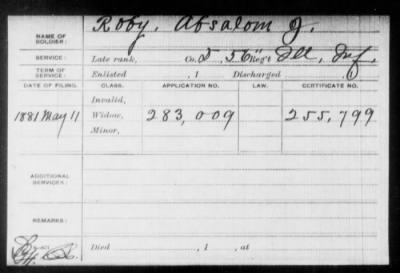 Roby, Absalom J.
NAME OF SOLDIER:
SERVICE: Late rank, Co. D, 56" Reg't Ill. Inf.
TERM OF SERVICE: Enlisted , 1 Discharged , 1
DATE OF FILING. CLASS. APPLICATION NO. LAW. CERTIFICATE NO.
Invalid,
1881 May 11 Widow, 283,009 255,799
Minor,
ADDITIONAL SERVICES:
REMARKS:
Died , 1 , at